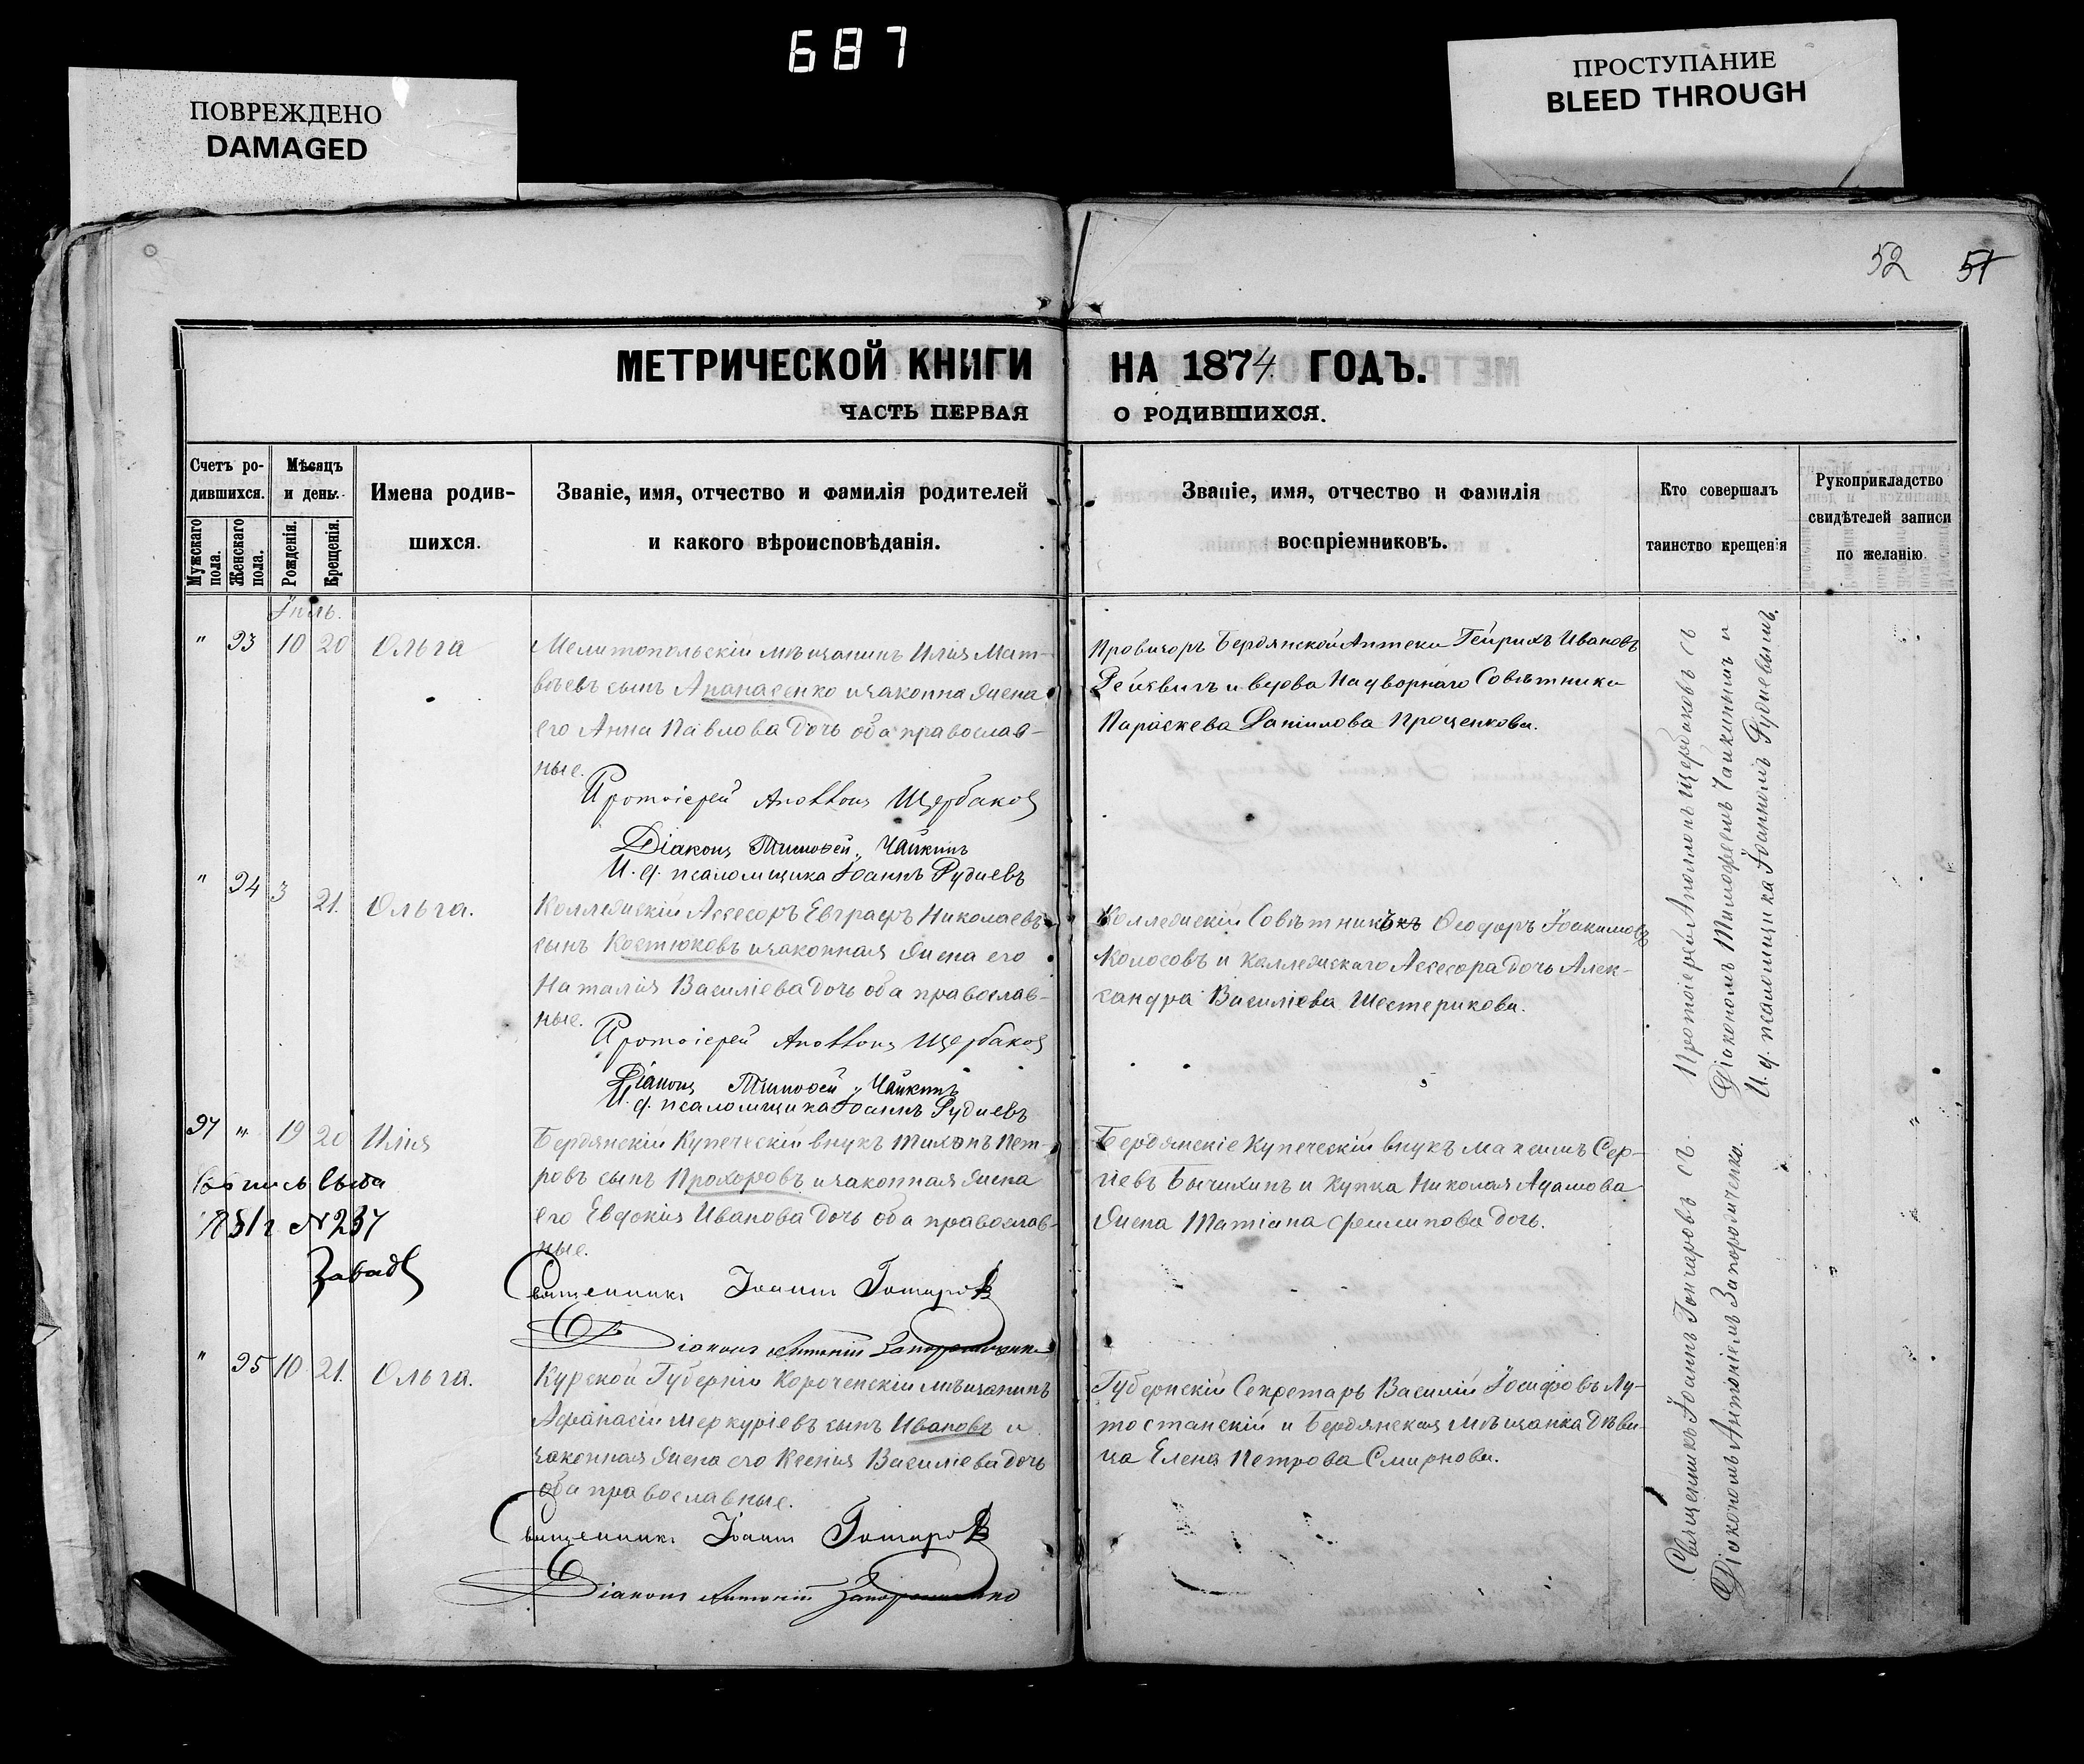 687
ПОВРЕЖДЕНО
DAMAGED
ПРОСТУПАНИЕ
BLEED THROUGH
52 51
МЕТРИЧЕСКОЙ КНИГИ НА 1874 ГОДЪ.
ЧАСТЬ ПЕРВАЯ О РОДИВШИХСЯ.
Счетъ ро-
дившихся.
Мужскаго пола.
Женскаго пола.
Мѣсяцъ
и день.
Рожденія.
Крещенія.
Имена родив-
шихся.
Званіе, имя, отчество и фамилія родителей
и какого вѣроисповѣданія.
Званіе, имя, отчество и фамилія
воспріемниковъ.
Кто совершалъ
таинство крещенія
Рукоприкладство
свидѣтелей записи
по желанію.
Іюль.
" 93 10 20 Ольга
Мелитопольскій мѣщанинъ Илія Мат-
вѣевъ сынъ Апанасенко и законная жена
его Анна Павлова дочь оба православ-
ные.
Протоіерей Аполлонъ Щербаковъ
Діаконъ Тимофей Чайкинъ
И. д. псаломщика Іоаннъ Рудневъ
Провизоръ Бердянской Аптеки Гейрихъ Ивановъ
и вдова Надворнаго Совѣтника
Параскева Данилова Проценкова.
" 94 3 21. Ольга.
Коллежскій Ассесоръ Евграфъ Николаевъ
сынъ Костюковъ и законная жена его
Наталія Василіева дочь оба православ-
ные.
Протоіерей Аполлонъ Щербаковъ
Діаконъ Тимофей Чайкинъ
И. д. псаломщика Іоаннъ Рудневъ
Коллежскій Совѣтникъ Ѳеодоръ Іоакимовъ
Колосовъ и Коллежскаго Ассесора дочь Алек-
сандра Василіева Шестерикова.
Протоіерей Аполлонъ Щербаковъ съ
Діакономъ Тимофеемъ Чайкинымъ и
И. д. псаломщика Іоанномъ Рудневымъ.
97 " 19 20 Илія
Бердянскій Купеческій внукъ Тихонъ Пет-
ровъ сынъ Прохоровъ и законная жена
его Евдокія Иванова дочь оба православ-
ные.
Священникъ Іоаннъ Гончаровъ
Діаконъ Антоній Запорожченко
№ 237
Бердянскіе Купеческій внукъ Максимъ Сер-
гіевъ Бычихинъ и купца Николая Адамова
жена Татіана Филипова дочь.
" 95 10 21. Ольга.
Курской Губерніи Короченскій мѣщанинъ
Афанасій Меркуріевъ сынъ Ивановъ и
законная жена его Ксенія Василіева дочь
оба православные.
Священникъ Іоаннъ Гончаровъ
Діаконъ Антоній Запорожченко
Губернскій Секретарь Василій Іосифовъ Лу-
тостанскій и Бердянская мѣщанка дѣви-
ца Елена Петрова Смирнова.
Священникъ Іоаннъ Гончаровъ съ
Діакономъ Антоніемъ Запорожченко.